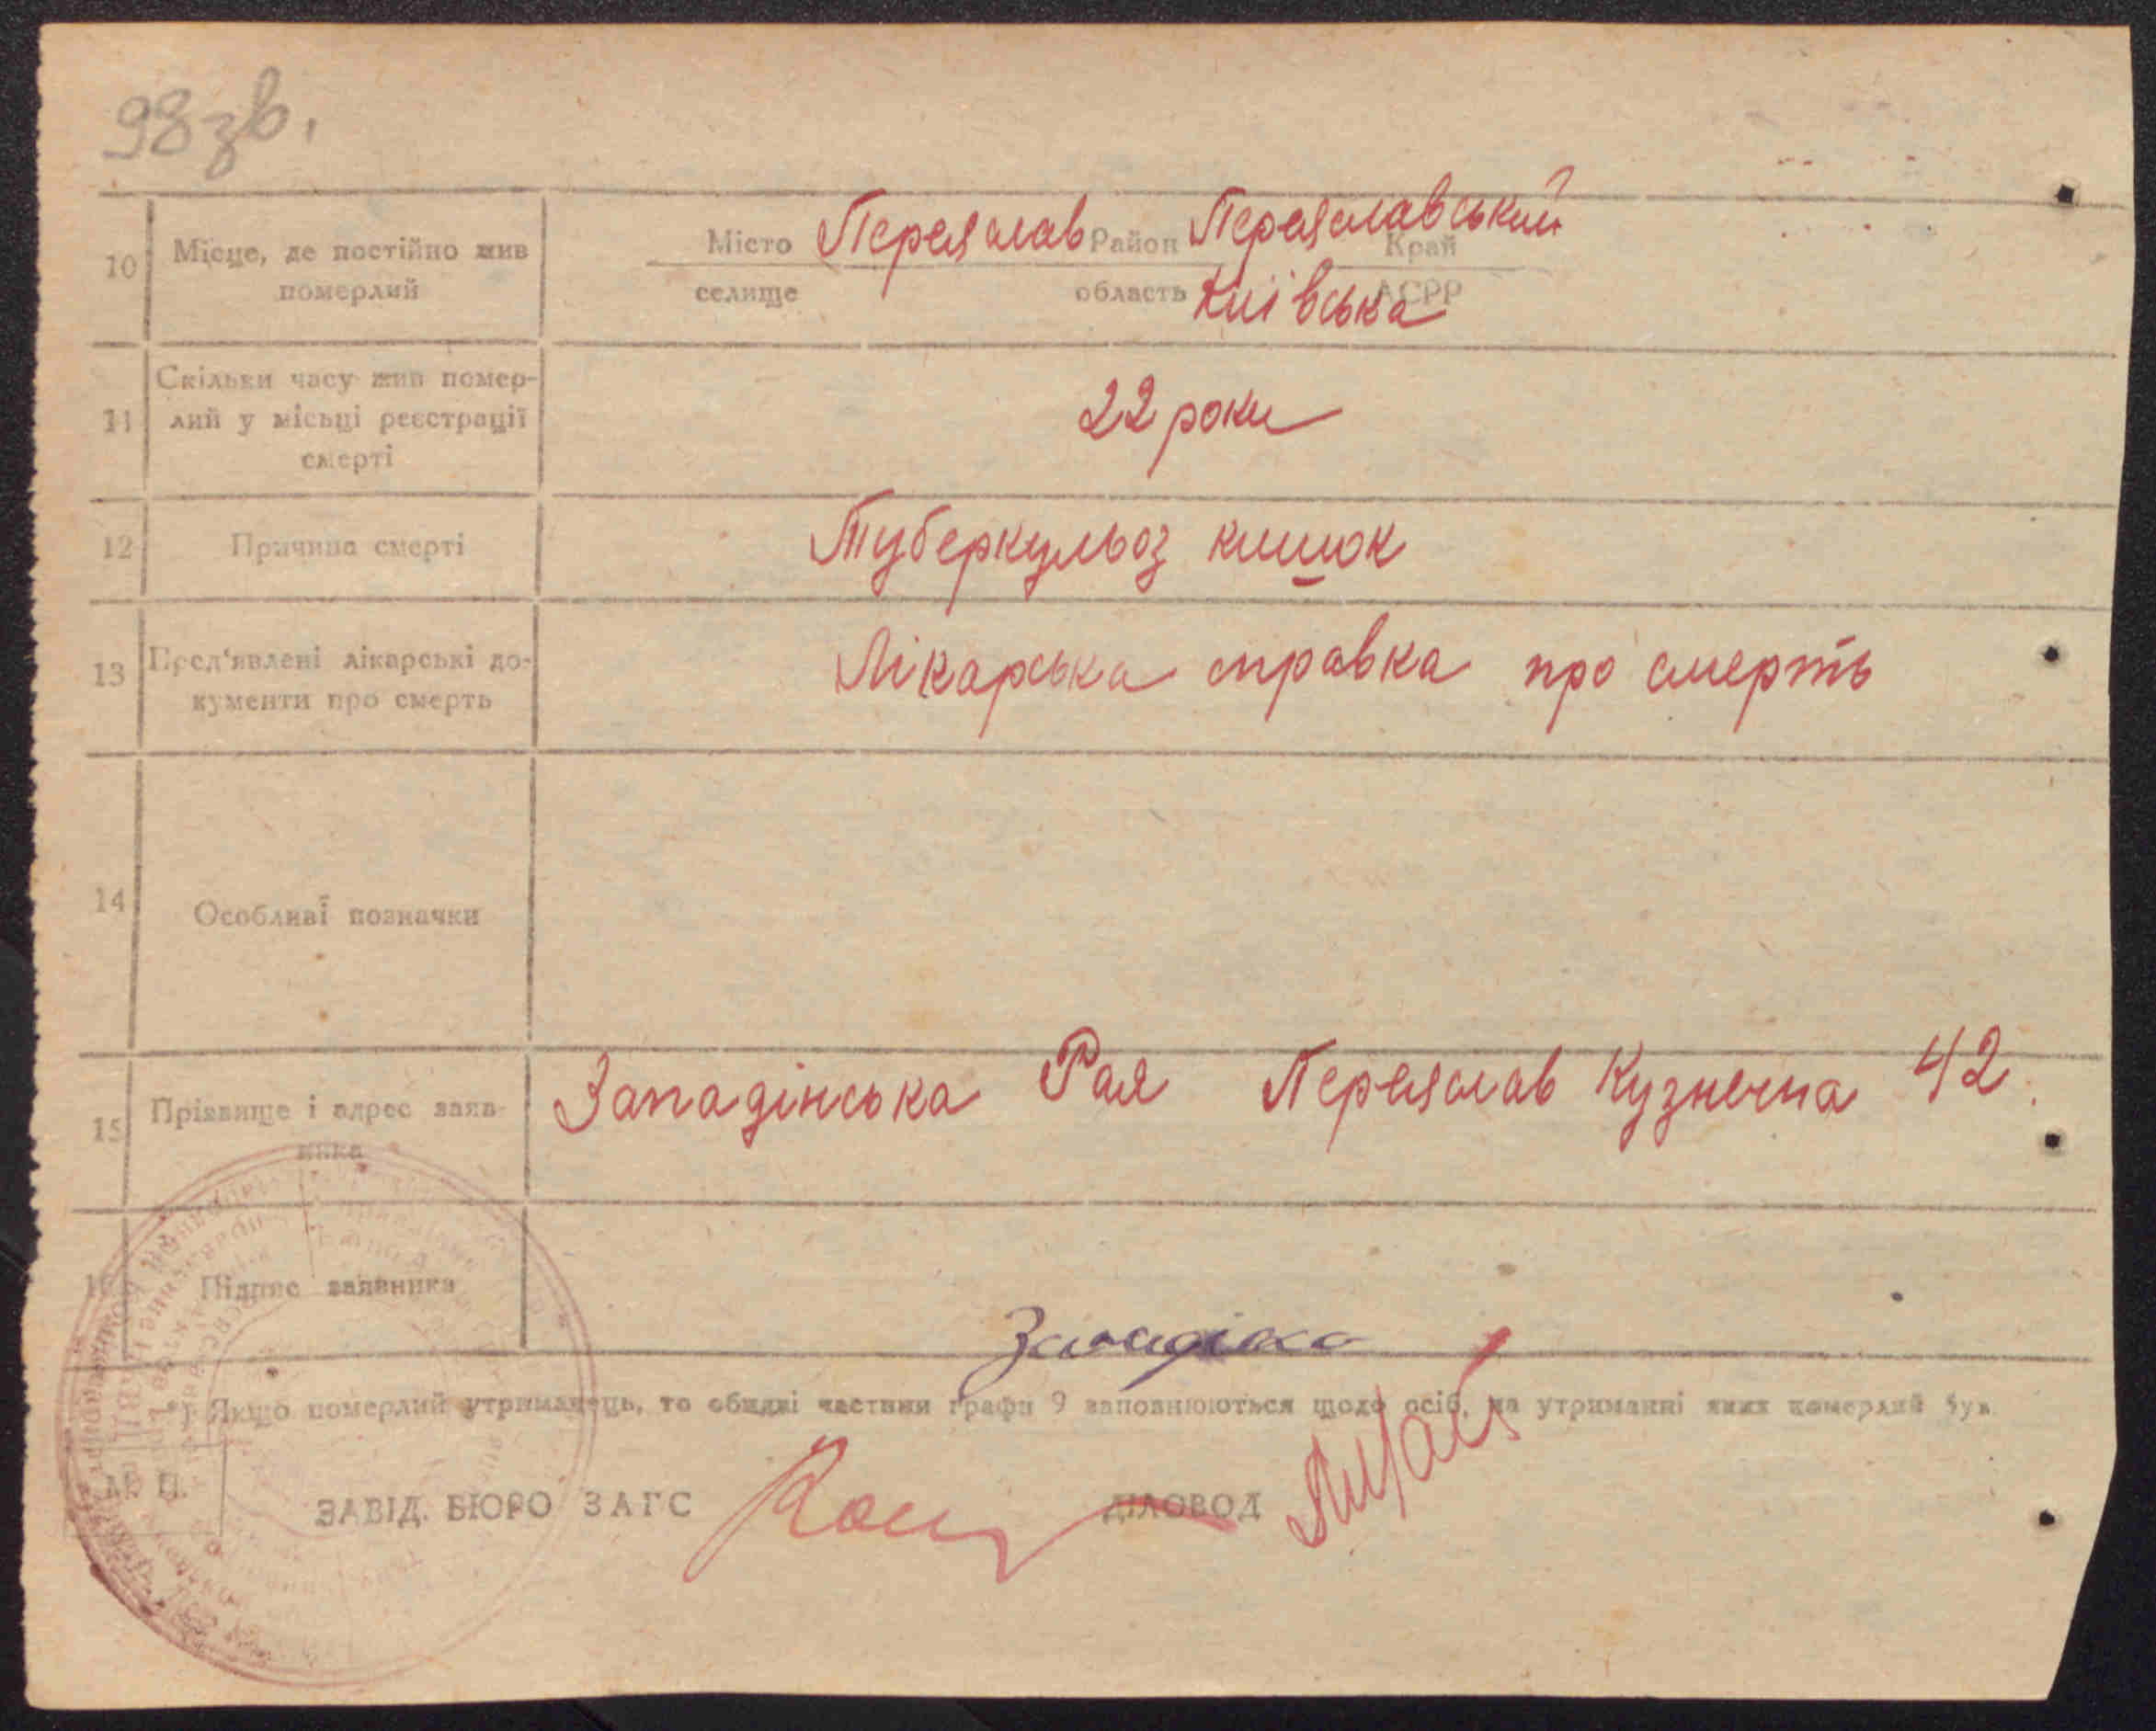 98 зв.
10 Місце, де постійно жив померлий
Місто Переяслав Район Переяславський Край
селище область Київська АСРР
11 Скільки часу жив помер-
лий у місьці реєстрації
смерті
22 роки
12 Причина смерті Туберкульоз кишок
13 Пред'явлені лікарські до-
кументи про смерть
Лікарська справка про смерть
14 Особливі позначки
15 Прізвище і адрес заяв-
ника
Западінська Рая Переяслав Кузнечна 42.
16 Підпис заявника
*) Якщо померлий утриманець, то обидві частини графи 9 заповнюються щодо осіб, на утриманні яких померлий був
М. П.
ЗАВІД. БЮРО ЗАГС ДІЛОВОД